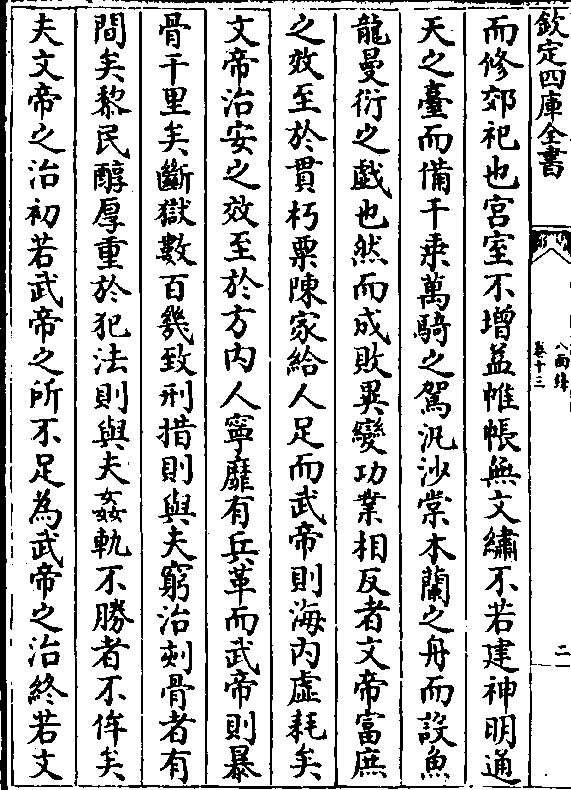 欽定四庫全書
八面鋒
卷十三
二
而修郊祀也宫室不增益帷帳無文繡不若建神明通
天之臺而備千乘萬騎之駕汎沙棠木蘭之舟而設魚
龍曼衍之戲也然而成敗異變功業相反者文帝富庶
之效至於貫朽粟陳家給人足而武帝則海内虛耗矣
文帝治安之效至於方内人寧靡有兵革而武帝則暴
骨千里矣斷獄數百幾致刑措則與夫窮治刻骨者有
間矣黎民醇厚重於犯法則與夫姦軌不勝者不侔矣
夫文帝之治初若武帝之所不足為武帝之治終若文